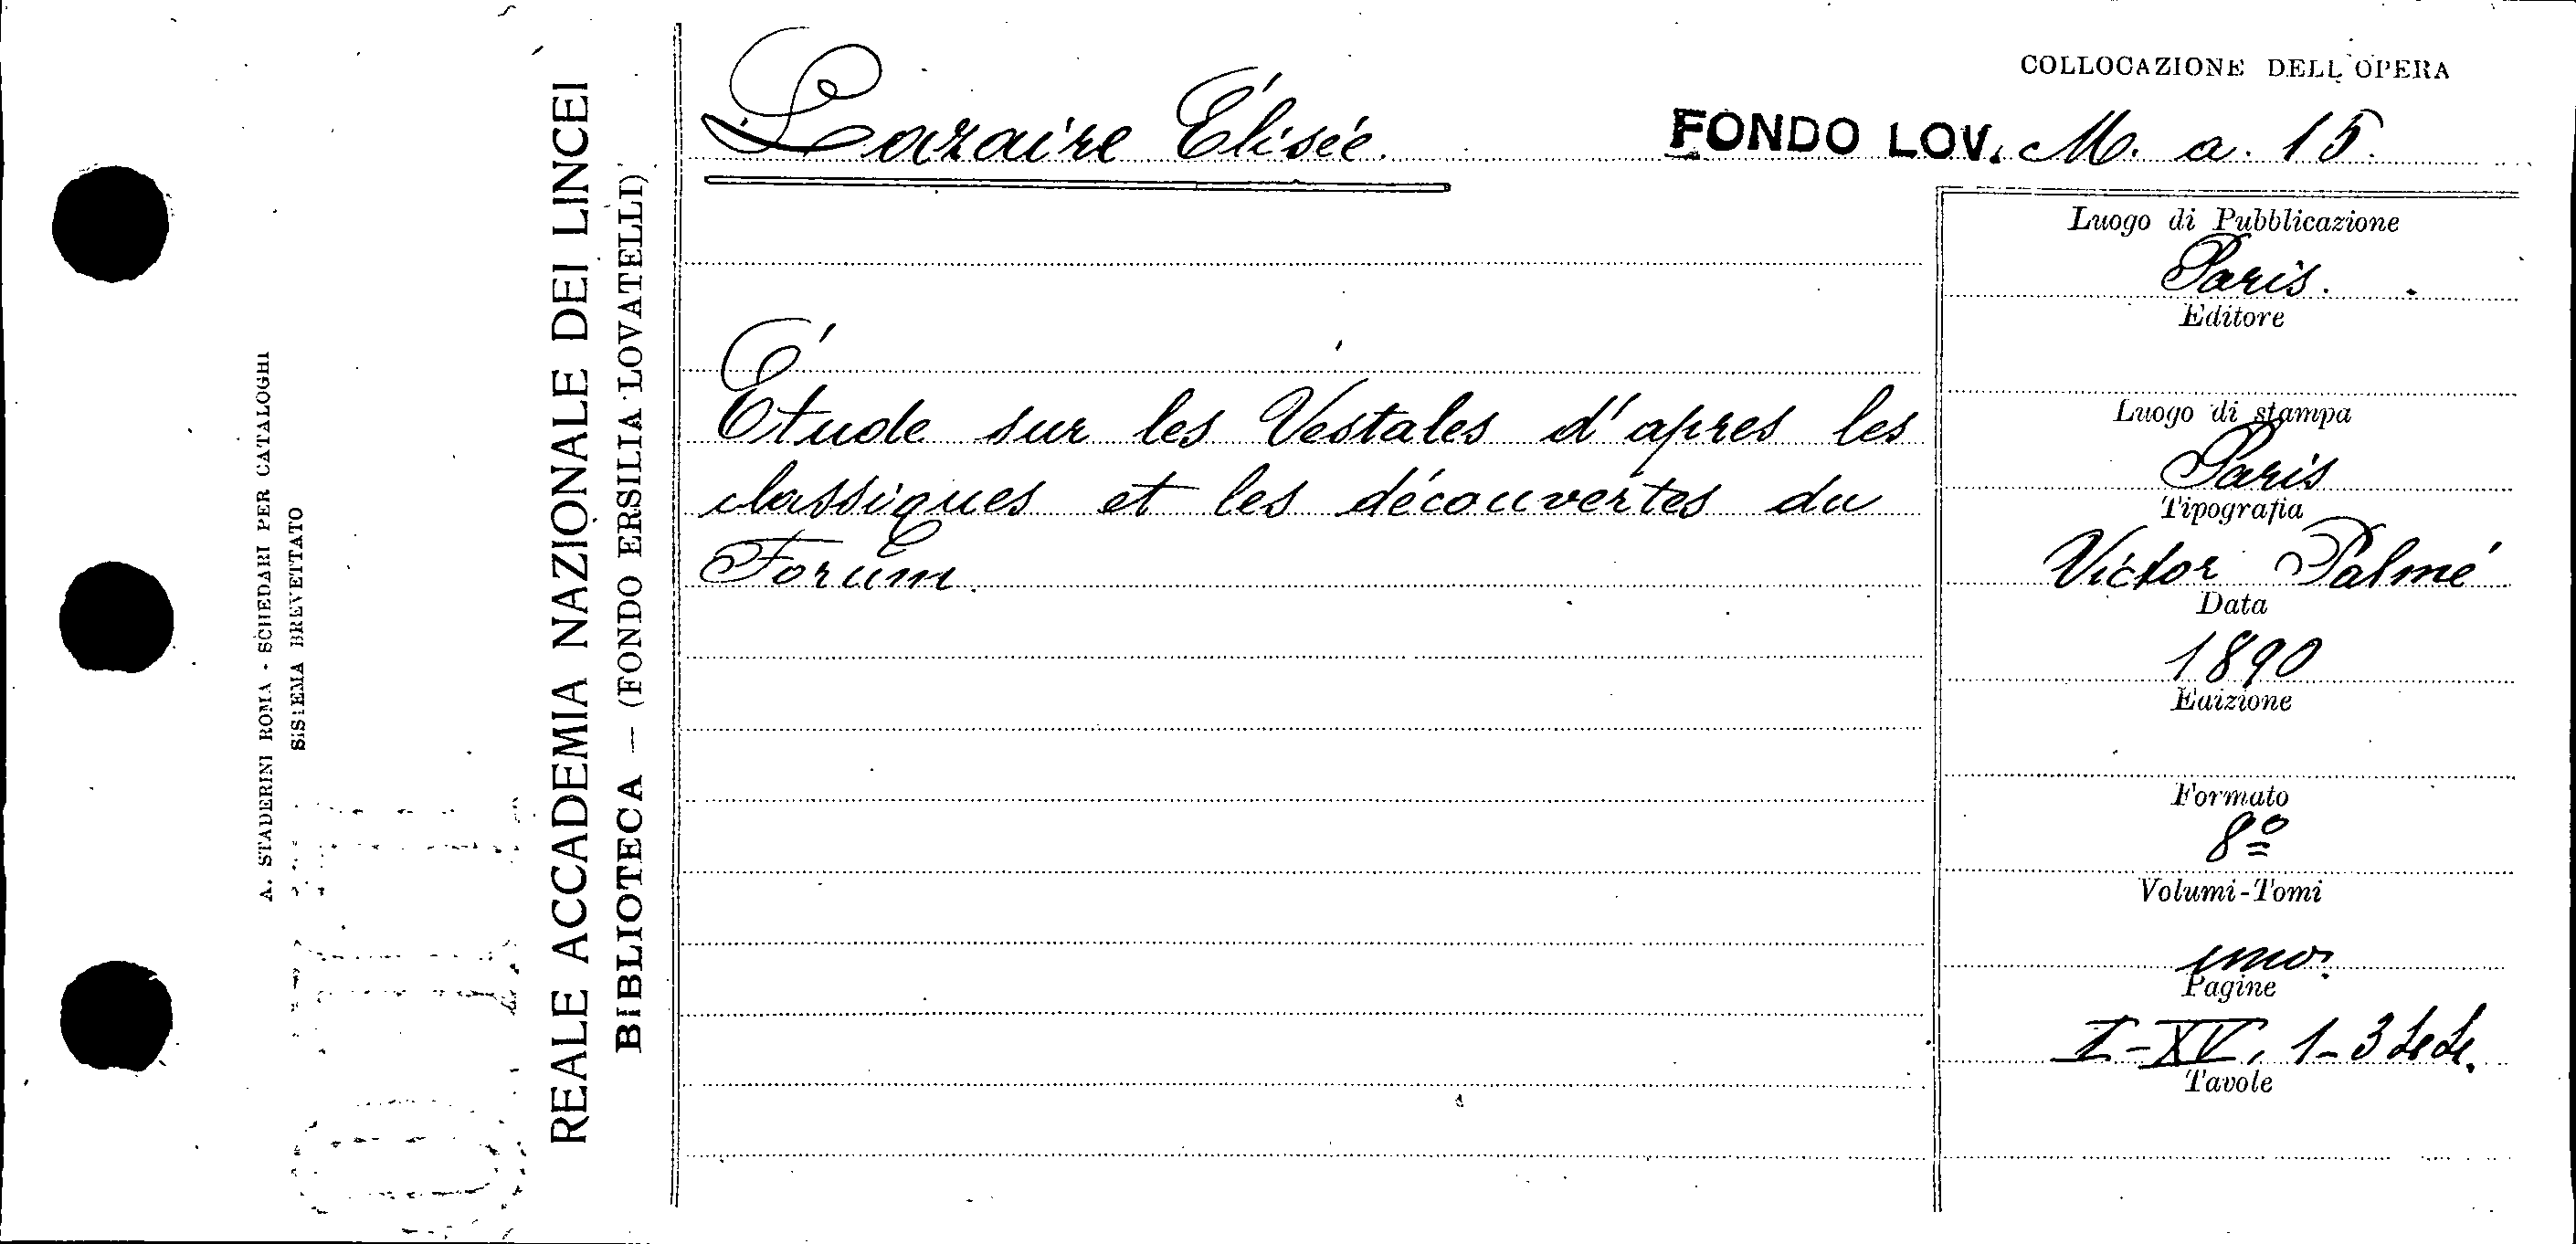 COLLOCAZIONE DELL'OPERA
Lazaire Élisée.
FONDO LOV. M. a. 15.
Étude sur les Vestales d'apres les
classiques et les découvertes du
Forum.
Luogo di Pubblicazione
Paris.
Editore
Luogo di stampa
Paris
Tipografia
Victor Palmé
Data
1890
Edizione
Formato
8º
Volumi-Tomi
uno.
Pagine
I-XV, 1-344.
Tavole
REALE ACCADEMIA NAZIONALE DEI LINCEI
BIBLIOTECA — (FONDO ERSILIA LOVATELLI)
A. STADERINI ROMA - SCHEDARI PER CATALOGHI
SISTEMA BREVETTATO